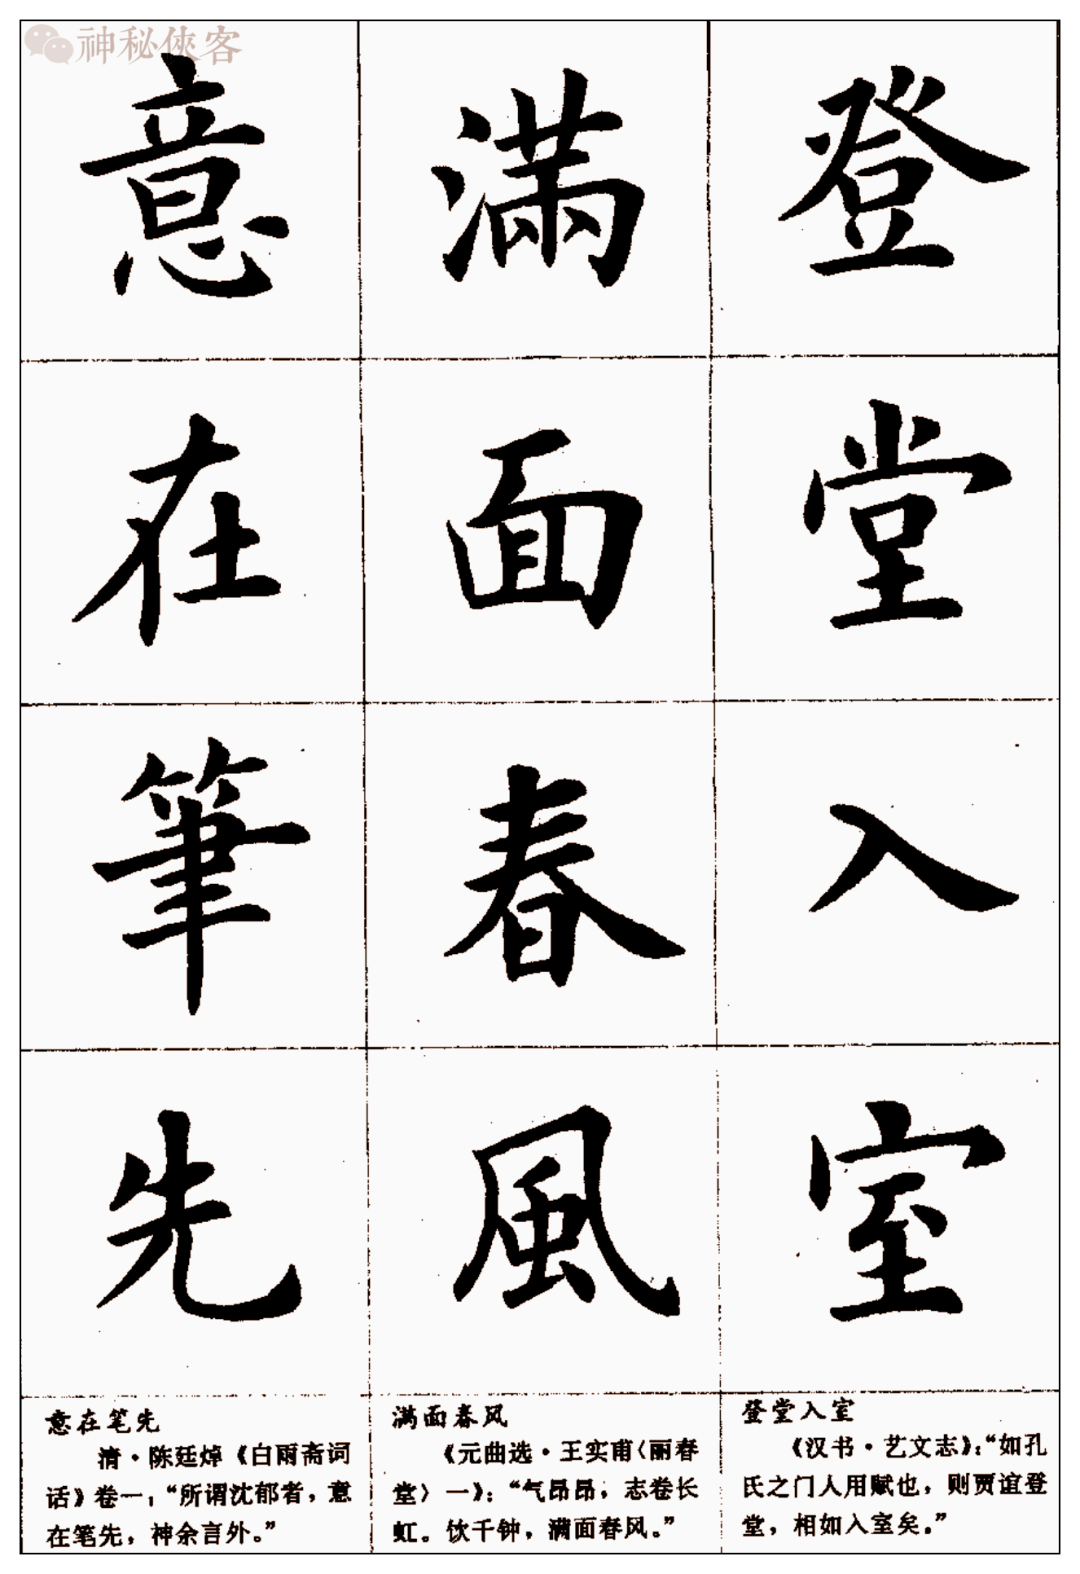 神秘侠客
登堂入室
满面春風
意在筆先
意在笔先
清·陈廷焯《白雨斋词
话》卷一：“所谓沈郁者，意
在笔先，神余言外。”
满面春风
《元曲选·王实甫〈丽春
堂〉一》：“气昂昂，志卷长
虹。饮千钟，满面春风。”
登堂入室
《汉书·艺文志》：“如孔
氏之门人用赋也，则贾谊登
堂，相如入室矣。”